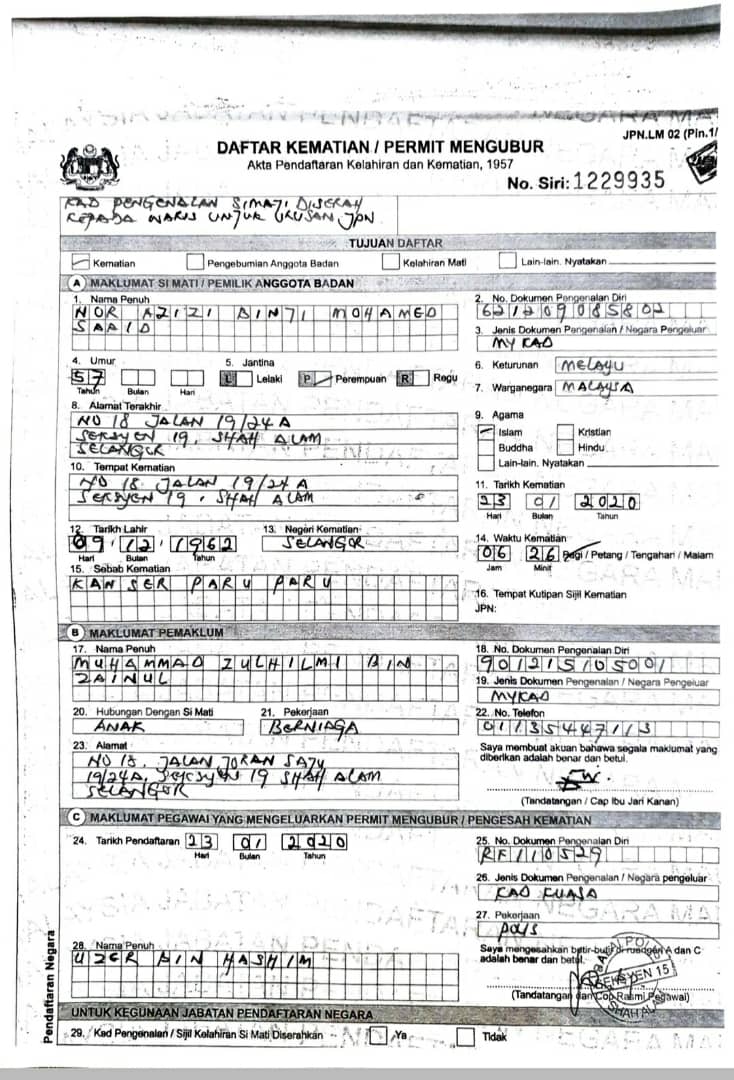 JPN.LM 02 (Pin.1/
DAFTAR KEMATIAN / PERMIT MENGUBUR
Akta Pendaftaran Kelahiran dan Kematian, 1957
No. Siri: 1229935
KAD PENGENALAN SIMATI DISERAH
KEPADA WARIS UNTUK URUSAN JPN
TUJUAN DAFTAR
Kematian Pengebumian Anggota Badan Kelahiran Mati Lain-lain. Nyatakan
A MAKLUMAT SI MATI / PEMILIK ANGGOTA BADAN
1. Nama Penuh
NOR AZIZI BINTI MOHAMED
SAAID
2. No. Dokumen Pengenalan Diri
621209085802
3. Jenis Dokumen Pengenalan / Negara Pengeluar
MY KAD
4. Umur
57
Tahun Bulan Hari
5. Jantina
L Lelaki P Perempuan R Ragu
6. Keturunan MELAYU
7. Warganegara MALAYSIA
8. Alamat Terakhir
NO 18 JALAN 19/24A
SEKSYEN 19, SHAH ALAM
SELANGOR
9. Agama
Islam Kristian
Buddha Hindu
Lain-lain. Nyatakan
10. Tempat Kematian
NO 18 JALAN 19/24 A
SEKSYEN 19, SHAH ALAM
11. Tarikh Kematian
23 01 2020
Hari Bulan Tahun
12. Tarikh Lahir
09 12 1962
Hari Bulan Tahun
13. Negeri Kematian
SELANGOR
14. Waktu Kematian
06 26 Pagi / Petang / Tengahari / Malam
Jam Minit
15. Sebab Kematian
KANSER PARU PARU
16. Tempat Kutipan Sijil Kematian
JPN:
B MAKLUMAT PEMAKLUM
17. Nama Penuh
MUHAMMAD ZULHILMI BIN
ZAINUL
18. No. Dokumen Pengenalan Diri
901215105001
19. Jenis Dokumen Pengenalan / Negara Pengeluar
MYKAD
20. Hubungan Dengan Si Mati
ANAK
21. Pekerjaan
BERNIAGA
22. No. Telefon
01135447113
23. Alamat
NO 18, JALAN JORAN SATU
19/24A, SEKSYEN 19 SHAH ALAM
SELANGOR
Saya membuat akuan bahawa segala maklumat yang
diberikan adalah benar dan betul.
(Tandatangan / Cap Ibu Jari Kanan)
C MAKLUMAT PEGAWAI YANG MENGELUARKAN PERMIT MENGUBUR / PENGESAH KEMATIAN
24. Tarikh Pendaftaran 23 01 2020
Hari Bulan Tahun
25. No. Dokumen Pengenalan Diri
RF110529
26. Jenis Dokumen Pengenalan / Negara pengeluar
KAD KUASA
27. Pekerjaan
POLIS
28. Nama Penuh
UZER BIN HASHIM
Saya mengesahkan butir-butir di ruangan A dan C
adalah benar dan betul.
SEKSYEN 15
SHAH ALAM
(Tandatangan dan Cop Rasmi Pegawai)
Pendaftaran Negara
UNTUK KEGUNAAN JABATAN PENDAFTARAN NEGARA
29. Kad Pengenalan / Sijil Kelahiran Si Mati Diserahkan Ya Tidak